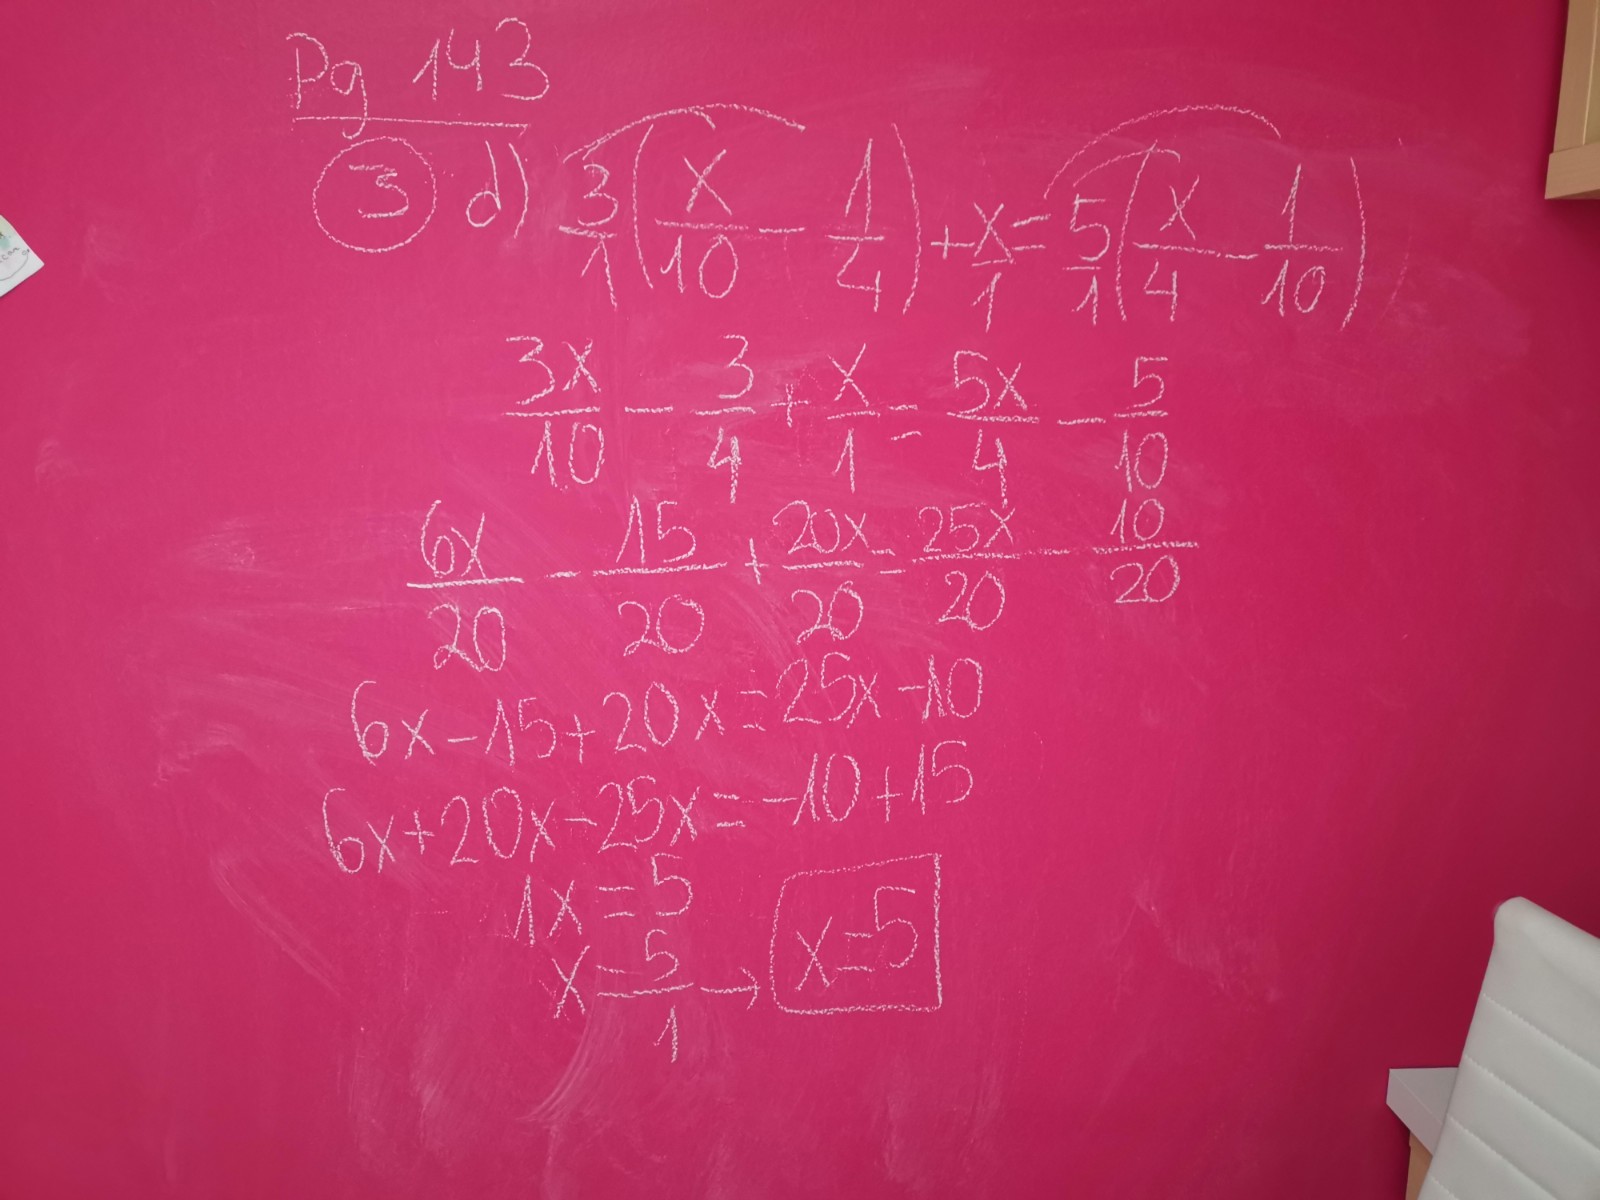 Pg 143
3 d) 3/1 (x/10 - 1/4) + x/1 = 5/1 (x/4 - 1/10)
3x/10 - 3/4 + x/1 = 5x/4 - 5/10
6x/20 - 15/20 + 20x/20 = 25x/20 - 10/20
6x - 15 + 20x = 25x - 10
6x + 20x - 25x = -10 + 15
1x = 5
x = 5/1 → x = 5